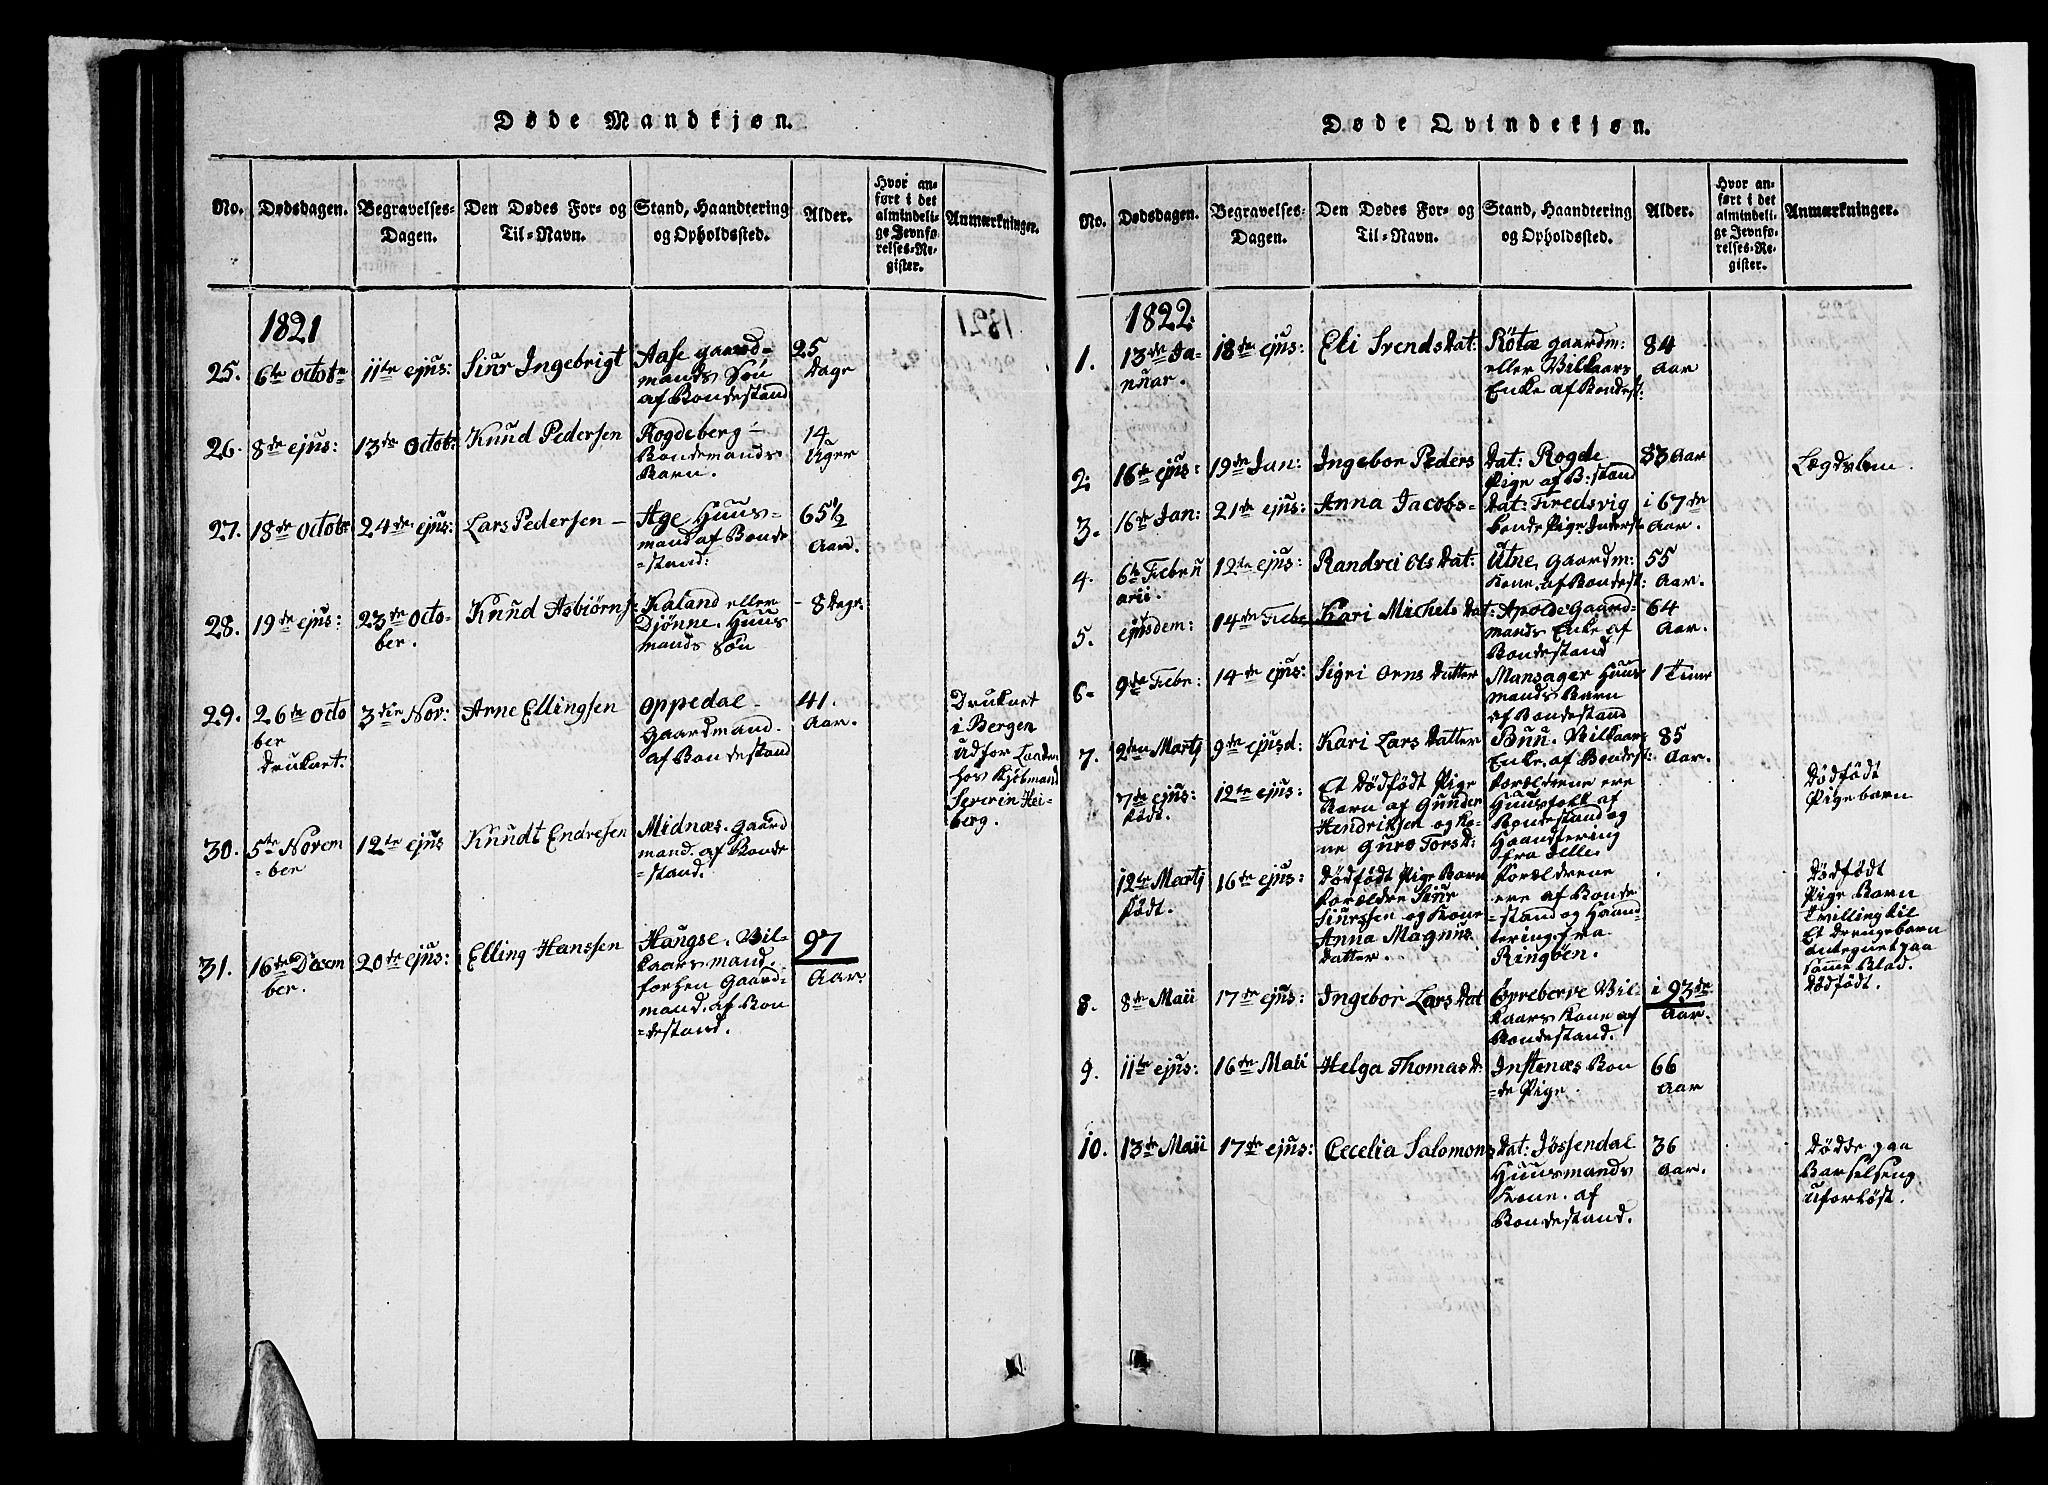 Døde Mandkjøn.
No.
Dødsdagen.
Begravelses-
Dagen.
Den Dødes For- og
Til-Navn.
Stand, Haandtering
og Opholdssted.
Alder.
Hvor an-
ført i det
almindeli-
ge Jevnfø-
relses-Re-
gister.
Anmærkninger.
1821
25.
6te Octobr
11te ejus:
Siur Ingebrigt
Aase gaard-
mands Søn
af Bondestand
25
Dage
26.
8de ejus:
13de Octob:
Knud Pedersen
Rogdeberg -
Bondemands
Barn.
14
Uger
27.
18de Octobr
24de ejus:
Lars Pedersen -
Age Huus-
mand af Bonde
=stand:
65½
Aar.
28.
19de ejus:
23de Octo-
ber.
Knud Asbiørns:
Kaland eller
Diønne. Huus
mands Søn
- 8 Dage:
29.
26de Octo
ber
Druknet.
3die Nov:
Arne Ellingsen
Oppedal -
Gaardmand.
af Bondestand
41.
Aar.
Druknet
i Bergen
Udfor
hos Kjøbmand
Severin Hei-
berg.
30.
5te Novem
=ber
12te ejus
Knudt Endresen
Midnæs. Gaard
mand. af Bonde
=stand.
31.
16de Decem
ber.
20de ejus:
Elling Hanssen
Haugse. Vil-
kaarsmand.
forhen Gaard-
mand. af Bon
=destand.
97
Aar.
Døde Qvindekjøn.
No.
Dødsdagen.
Begravelses-
Dagen.
Den Dødes For- og
Til-Navn.
Stand, Haandtering
og Opholdssted.
Alder.
Hvor an-
ført i det
almindeli-
ge Jevnfø-
relses-Re-
gister.
Anmærkninger.
1822.
1.
13de Ja-
nuar.
18de ejus:
Eli Svends Dat:
Röte gaardm:
eller Vilkaars
Enke af Bondest:
84
Aar
2.
16de ejus:
19de Jan:
Ingebor Peders
Dat: Rogde
Pige af B:stand
83 Aar
Lægdslem.
3.
16de Jan:
21de ejus:
Anna Jacobs-
Dat: Fredsvig
bonde Pige Inderst
i 67de
Aar.
4.
6te Febru
arii
12te ejus:
Randvei Ols Dat:
Utne, Gaardm:
Kone, af Bondest:
55
Aar.
5.
ejusdem:
14de Febr
Kari Michels Dat:
Apolde Gaard-
mands Enke af
Bondestand
64
Aar.
6.
9de Febr:
14de ejus:
Sigri Orns Datter
Mansager Huus
mands Barn
af Bondestand
1 Time
7.
2den Martj
9de ejusd:
Kari Lars Datter
Buu. Vilkaars
Enke. af Bondest:
85
Aar.
7de ejus:
Født.
12te ejus:
Et Dødfødt Pige
Barn af Gunder
Hendriksen og Ko-
ne Guro Tors D:
Forældrene ere
Huusfolk af
Bondestand og
Haandtering
fra Helle.
Dødfødt
Pigebarn
12te Martj
Født.
16de ejus:
Dødfødt Pige Barn
Forældre Siur
Siurssen og Kone
Anna Magnus
Datter.
Forældrene
ere af Bonde
=stand og Haand
tering fra
Ringöen.
Dødfødt
Pige Barn
Tvilling til
Et Drengebarn
antegnet paa
samme Blad.
Dødfødt.
8.
8de Maii
17de ejus:
Ingebor Lars Dat
Opreberve Vil-
kaars Kone af
Bondestand.
i 93de
Aar.
9.
11te ejus:
16de Maii
Helga Thomas D:
Instenæs Bon
=de Pige.
66
Aar
10.
13de Maii
17de ejus:
Cecelia Salomons
Dat: Jössendal
Huusmands
Kone. af
Bondestand.
36
Aar.
Dødde paa
Barselseng
uforløst.